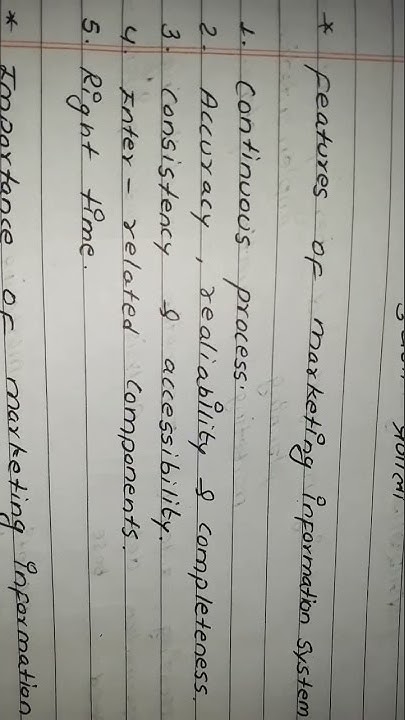 * Features of marketing information system
1. Continuous process.
2. Accuracy, realiability & completeness.
3. Consistency & accessibility.
4. Inter-related components.
5. Right time.
* Importance of marketing information